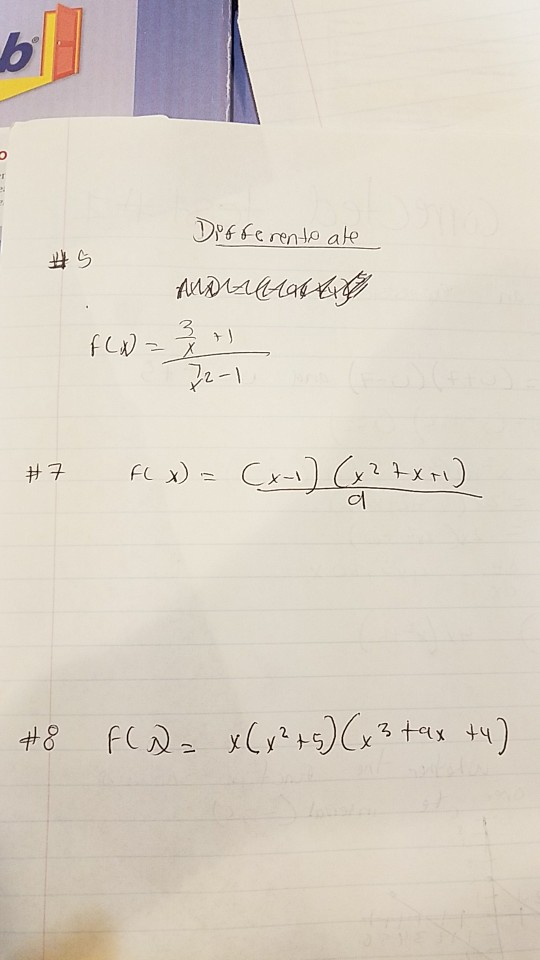 b®
Differentiate
#5
f(x) = (3/x + 1)/(7/x² - 1)
#7 f(x) = (x-1)(x² 7x+1)/9
#8 f(x) = x(x²+5)(x³+9x+4)